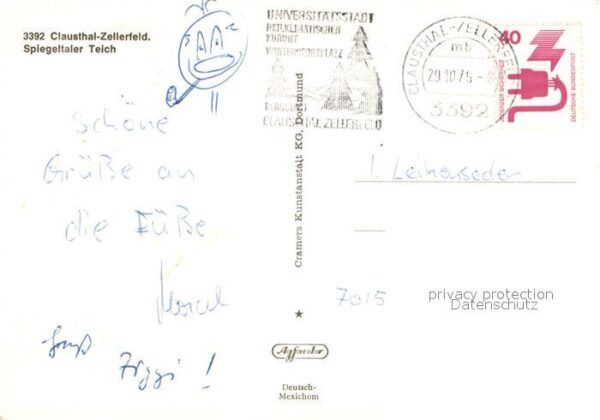 3392 Clausthal-Zellerfeld.
Spiegeltaler Teich
UNIVERSITÄTSSTADT
HEILKLIMATISCHER
KURORT
WINTERSPORTPLATZ
CLAUSTHAL-ZELLERFELD
CLAUSTHAL-ZELLERFELD
mb
29.10.75
3392
40
JEDERZEIT SICHERHEIT
DEUTSCHE BUNDESPOST
Schöne
Grüße an
die Füße
Marcel
Gruß
Ziggi !
Cramers Kunstanstalt KG, Dortmund
7015
privacy protection
Datenschutz
Agfacolor
Deutsch-
Mexichem